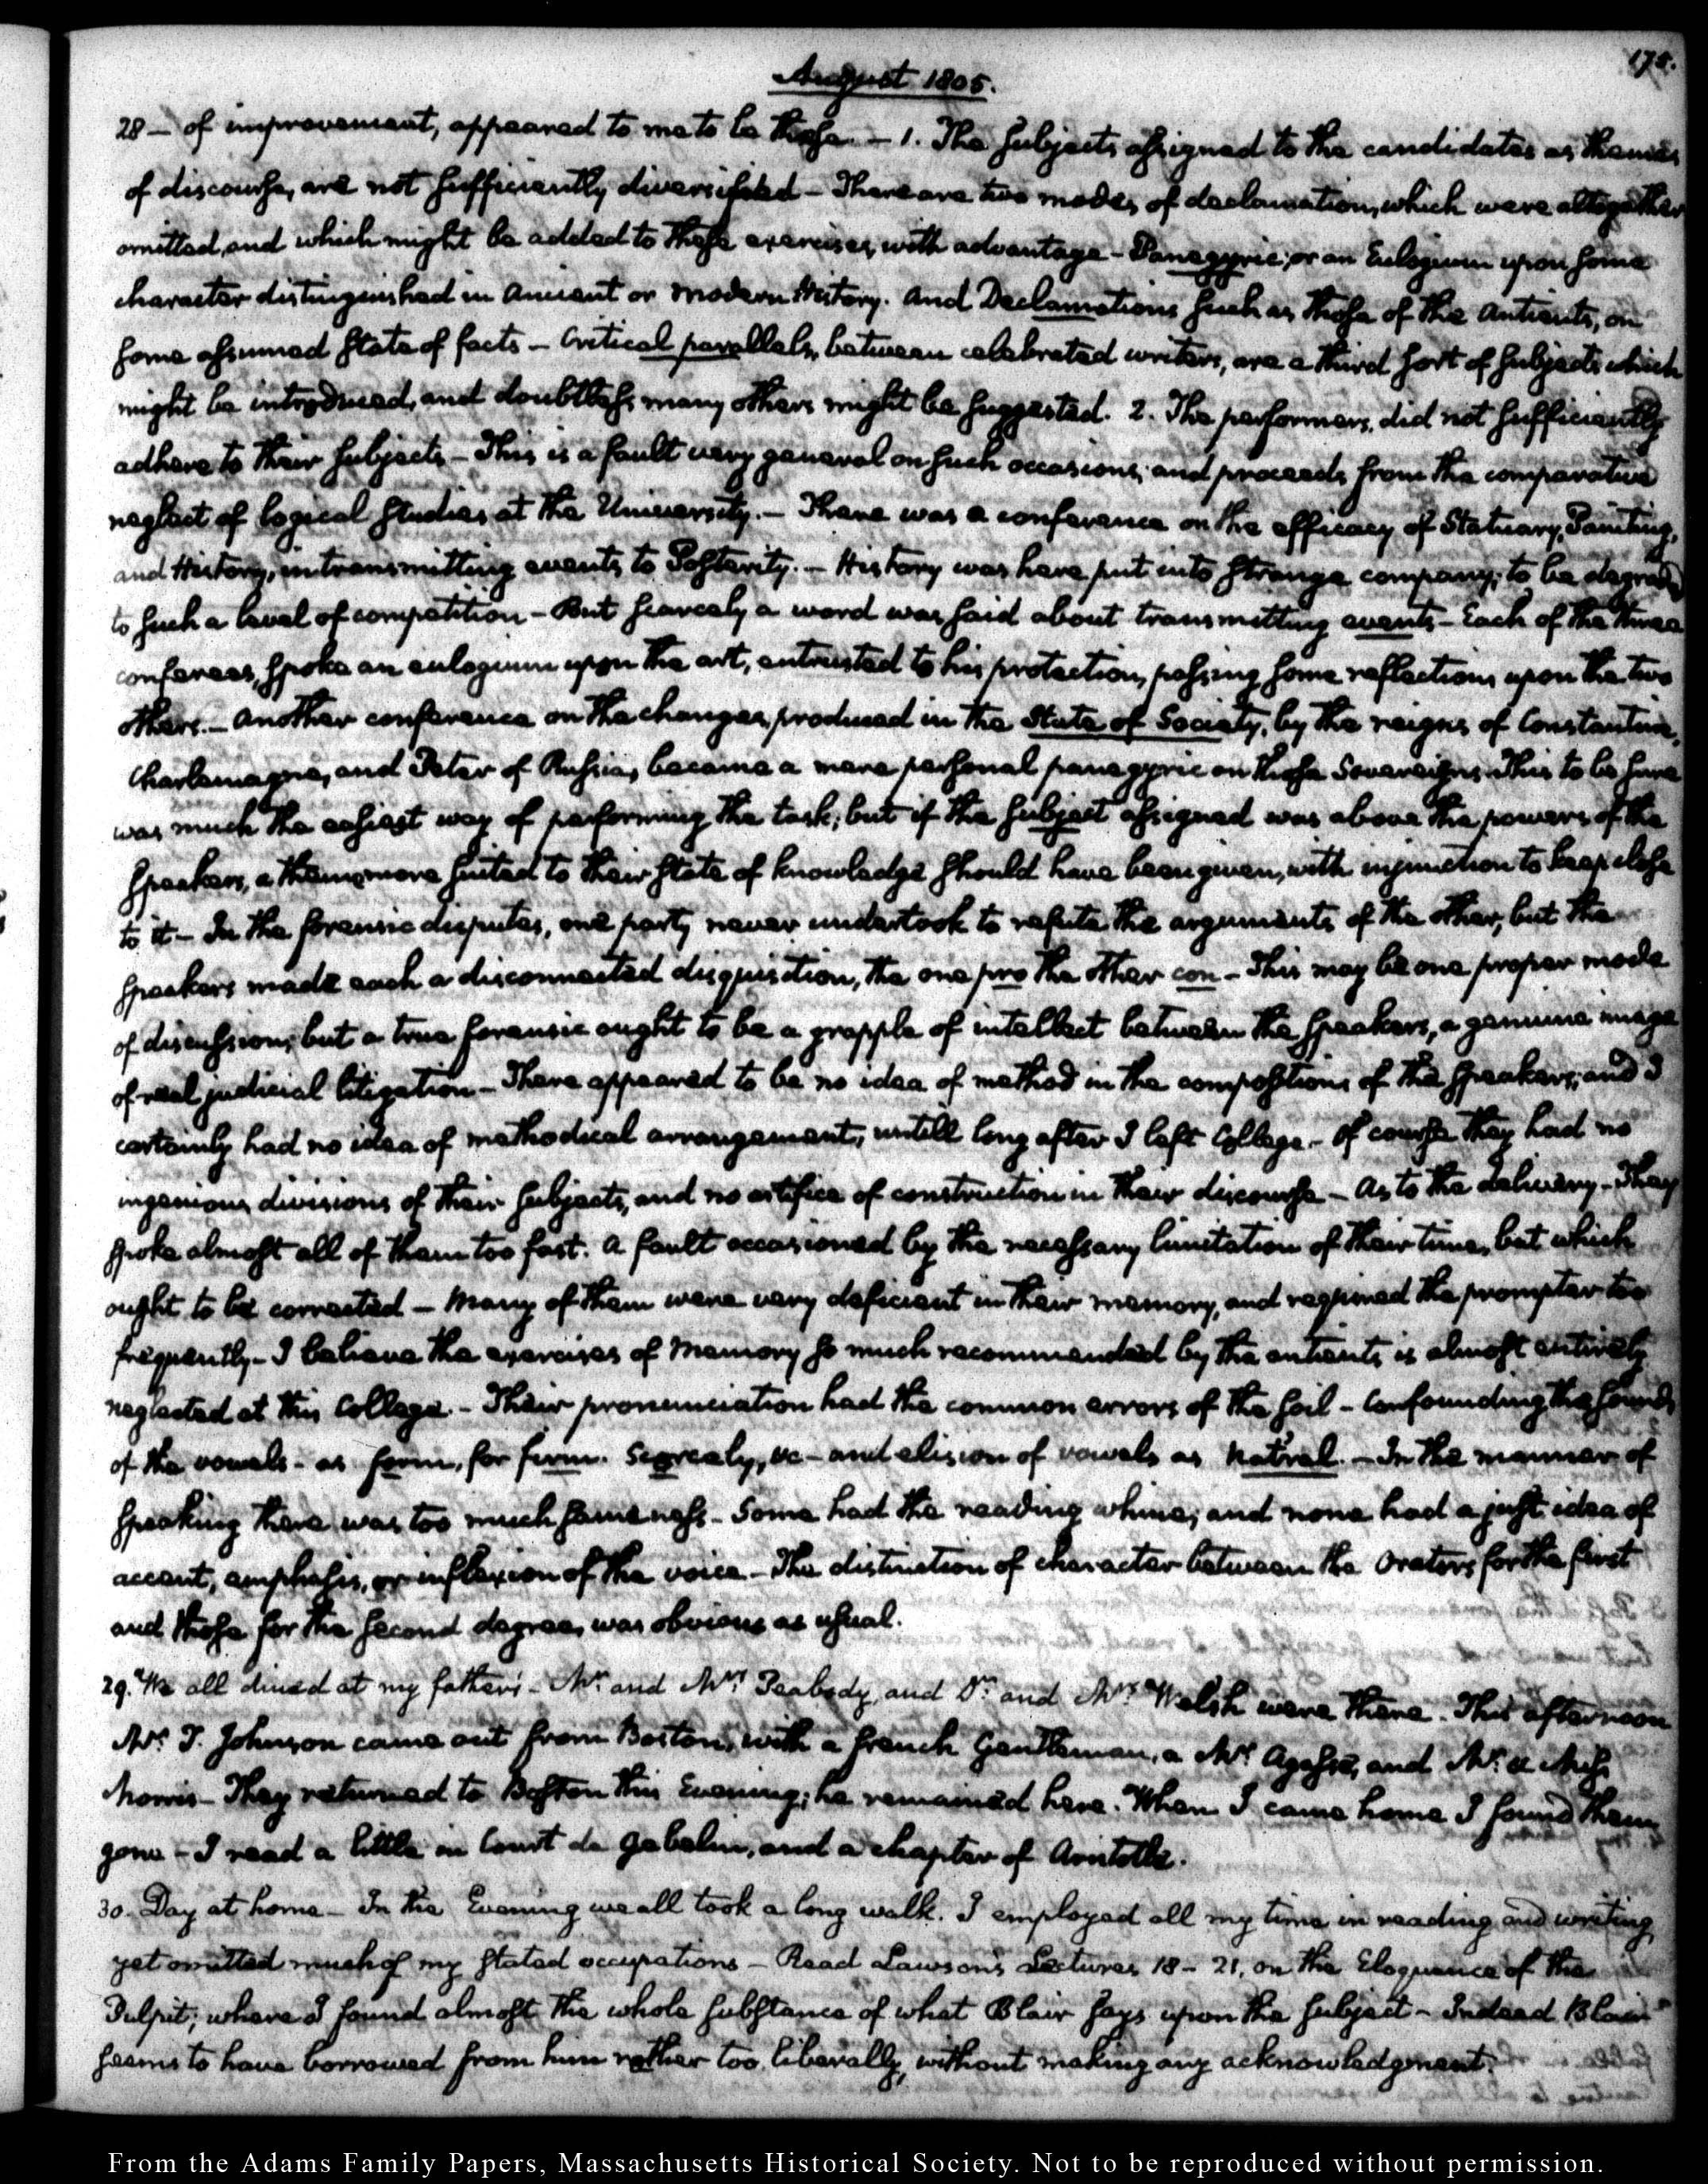 175.
August 1805.
28 — of improvement, appeared to me to be these. — 1. The subjects assigned to the candidates as themes
of discourse, are not sufficiently diversified — There are two modes of declamation, which were altogether
omitted, and which might be added to these exercises with advantage — Panegyric; or an Eulogium upon some
character distinguished in Ancient or modern History. And Declamations such as those of the Antients, on
some assumed state of facts — Critical parallels, between celebrated writers, are a third sort of subjects which
might be introduced, and doubtless many others might be suggested. 2. The performers, did not sufficiently
adhere to their subjects — This is a fault very general on such occasions; and proceeds from the comparative
neglect of logical studies at the University. — There was a conference on the efficacy of Statuary, Painting,
and History, in transmitting events to Posterity. — History was here put into strange company; to be degraded
to such a level of competition — But scarcely a word was said about transmitting events — Each of the three
conferees, spoke an eulogium upon the art, entrusted to his protection, passing some reflections upon the two
others. — Another conference on the changes, produced in the State of Society, by the reigns of Constantine,
Charlemagne, and Peter of Russia, became a mere personal panegyric on those Sovereigns. This to be sure
was much the easiest way of performing the task; but if the subject assigned was above the powers of the
speakers, a theme more suited to their state of knowledge should have been given, with injunction to keep close
to it — In the forensic disputes, one party never undertook to refute the arguments of the other, but the
speakers made each a disconnected disquisition, the one pro the other con — This may be one proper mode
of discussion; but a true forensic ought to be a grapple of intellect between the speakers, a genuine image
of real judicial litigation — There appeared to be no idea of method in the compositions of the speakers; and I
certainly had no idea of methodical arrangement, untill long after I left College — Of course they had no
ingenious divisions of their subjects, and no artifice of construction in their discourse — As to the delivery — They
spoke almost all of them too fast. A fault occasioned by the necessary limitation of their time, but which
ought to be corrected — Many of them were very deficient in their memory, and required the prompter too
frequently — I believe the exercises of Memory so much recommended by the antients is almost entirely
neglected at this College. — Their pronunciation had the common errors of the soil — Confounding the sounds
of the vowels — as form, for firm. Scorcely, &c — and elision of vowels as nat'ral. — In the manner of
speaking there was too much sameness — Some had the reading whine; and none had a just idea of
accent, emphasis, or inflexion of the voice — The distinction of character between the Orators for the first
and those for the second degree, was obvious as usual.
29. We all dined at my father's — Mr. and Mrs. Peabody, and Dr. and Mrs. Welsh were there. This afternoon
Mr. T. Johnson came out from Boston, with a french Gentleman, a Mr. Agasse, and Mr. & Miss
Morris — They returned to Boston this Evening; he remained here. When I came home I found them
gone — I read a little in Court de Gebelin, and a chapter of Aristotle.
30. Day at home — In the Evening we all took a long walk. I employed all my time in reading and writing,
yet omitted much of my stated occupations — Read Lawson's Lectures 18 — 21, on the Eloquence of the
Pulpit; where I found almost the whole substance of what Blair says upon the subject — Indeed Blair
seems to have borrowed from him rather too liberally, without making any acknowledgment.
From the Adams Family Papers, Massachusetts Historical Society. Not to be reproduced without permission.